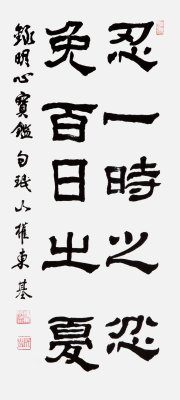 忍一時之忿
免百日之憂
錄明心寶鑑句 山 權東基